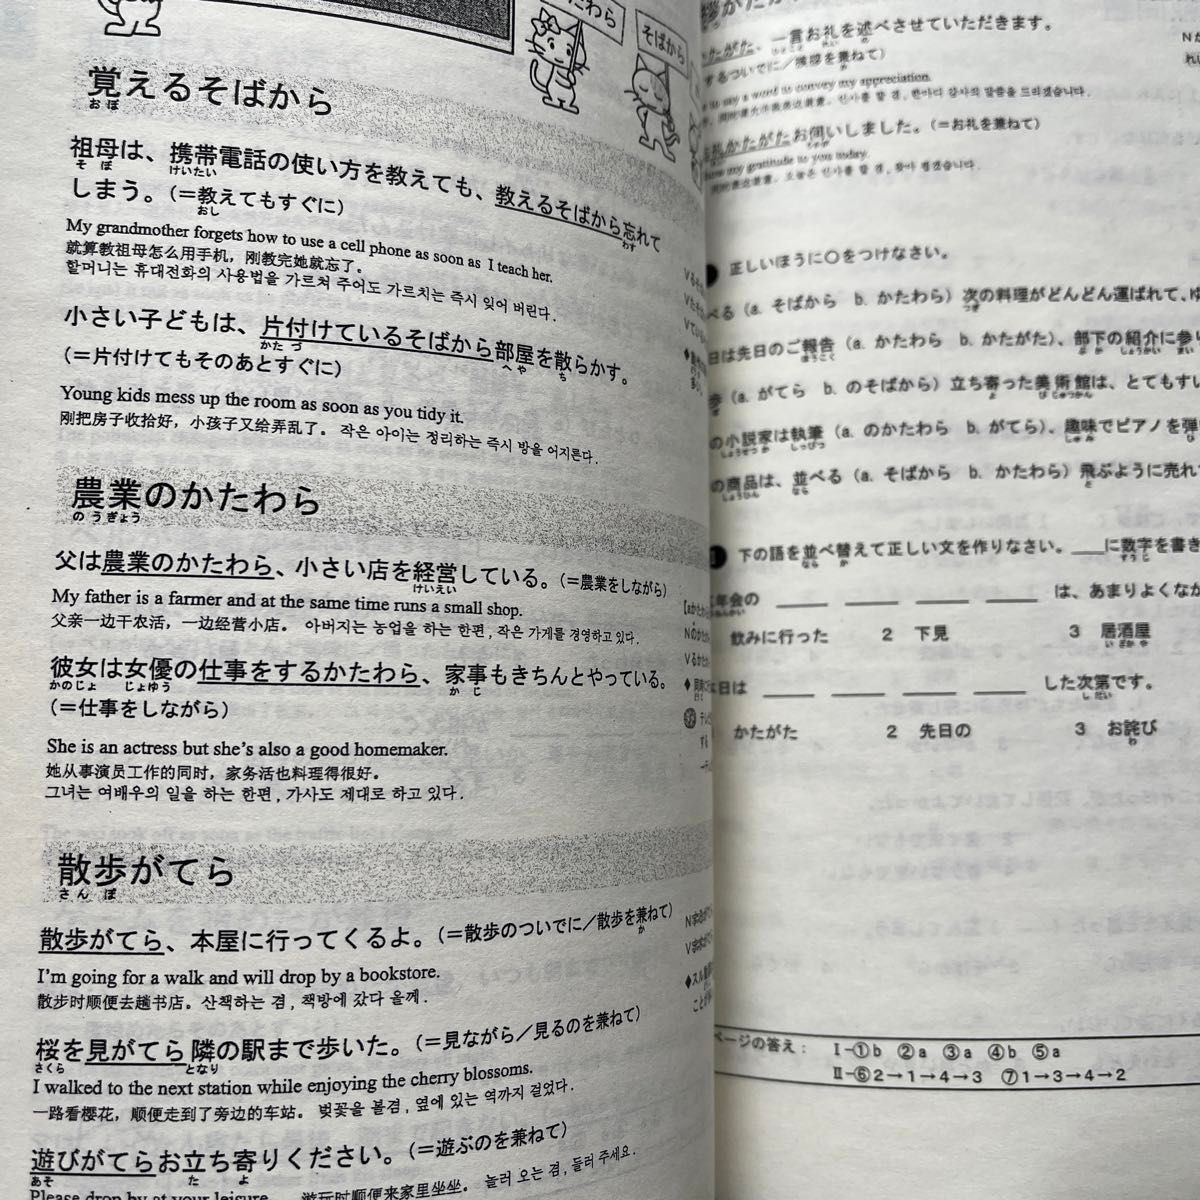 たわら
そばから
覚えるそばから
おぼ
祖母は、携帯電話の使い方を教えても、教えるそばから忘れて
そぼ けいたい わす
しまう。(=教えてもすぐに)
おし
My grandmother forgets how to use a cell phone as soon as I teach her.
就算教祖母怎么用手机，刚教完她就忘了。
할머니는 휴대전화의 사용법을 가르쳐 주어도 가르치는 즉시 잊어 버린다.
小さい子どもは、片付けているそばから部屋を散らかす。
かたづ へや ち
(=片付けてもそのあとすぐに)
Young kids mess up the room as soon as you tidy it.
刚把房子收拾好，小孩子又给弄乱了。 작은 아이는 정리하는 즉시 방을 어지른다.
農業のかたわら
のうぎょう
父は農業のかたわら、小さい店を経営している。(=農業をしながら)
けいえい
My father is a farmer and at the same time runs a small shop.
父亲一边干农活，一边经营小店。 아버지는 농업을 하는 한편, 작은 가게를 경영하고 있다.
彼女は女優の仕事をするかたわら、家事もきちんとやっている。
かのじょ じょゆう かじ
(=仕事をしながら)
She is an actress but she's also a good homemaker.
她从事演员工作的同时，家务活也料理得很好。
그녀는 여배우의 일을 하는 한편, 가사도 제대로 하고 있다.
散歩がてら
さんぽ
散歩がてら、本屋に行ってくるよ。(=散歩のついでに/散歩を兼ねて)
か
I'm going for a walk and will drop by a bookstore.
散步时顺便去趟书店。 산책하는 겸, 책방에 갔다 올께.
桜を見がてら隣の駅まで歩いた。(=見ながら/見るのを兼ねて)
さくら となり
I walked to the next station while enjoying the cherry blossoms.
一路看樱花，顺便走到了旁边的车站。 벚꽃을 볼겸, 옆에 있는 역까지 걸었다.
遊びがてらお立ち寄りください。(=遊ぶのを兼ねて)
あそ た よ
Please drop by at your leisure. 游玩时顺便来家里坐坐。 놀러 오는 겸, 들러 주세요.
かたがた、一言お礼を述べさせていただきます。
ひとこと れい の
するついでに/挨拶を兼ねて)
to say a word to convey my appreciation.
礼かたがたお伺いしました。(=お礼を兼ねて)
my gratitude to you today.
正しいほうに○をつけなさい。
べる (a. そばから b. かたわら) 次の料理がどんどん運ばれて、ゆ
つぎ
日は先日のご報告 (a. かたわら b. かたがた)、部下の紹介に参り
ほうこく ぶか しょうかい まい
歩 (a. がてら b. のそばから) 立ち寄った美術館は、とてもすい
よ びじゅつかん
の小説家は執筆 (a. のかたわら b. がてら)、趣味でピアノを弾い
しょうせつか しっぴつ しゅみ ひ
の商品は、並べる (a. そばから b. かたわら) 飛ぶように売れて
しょうひん なら と
下の語を並べ替えて正しい文を作りなさい。___に数字を書き
なら か すうじ
年会の ___ ___ ___ ___ は、あまりよくなか
飲みに行った 2 下見 3 居酒屋
いざかや
日は ___ ___ ___ ___ した次第です。
しだい
かたがた 2 先日の 3 お詫び
わ
ページの答え： Ⅰ-①b ②a ③a ④b ⑤a
Ⅱ-⑥2→1→4→3 ⑦1→3→4→2